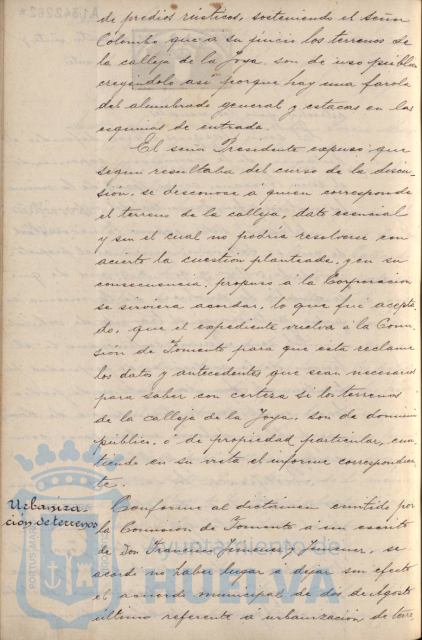 de predios rústicos, sosteniendo el señor
Colombo que á su juicio los terrenos de
la calleja de la Joya, son de uso público
creyendolo así porque hay una farola
del alumbrado general y estacas en las
esquinas de entrada.
El señor Presidente expuso que
segun resultaba del curso de la discu-
sión, se desconoce á quien corresponde
el terreno de la calleja, dato esencial
y sin el cual no podría resolverse con
acierto la cuestión planteada, y en su
consecuencia, propuso á la Corporacion
se sirviera acordar, lo que fué acepta-
do, que el expediente vuelva á la Comi-
sión de Fomento para que esta reclame
los datos y antecedentes que sean necesarios
para saber con certeza si los terrenos
de la calleja de la Joya, son de dominio
público, ó de propiedad particular, emi-
tiendo en su vista el informe correspondien-
te.
Urbaniza-
ción de terrenos
Conforme al dictámen emitido por
la Comisión de Fomento á un escrito
de Don Francisco Jimenez y Jimenez, se
acordó no haber lugar á dejar sin efecto
el acuerdo municipal de dos de Agosto
último referente á urbanización de terre
Ayuntamiento de
HUELVA
PORTUS MARIS